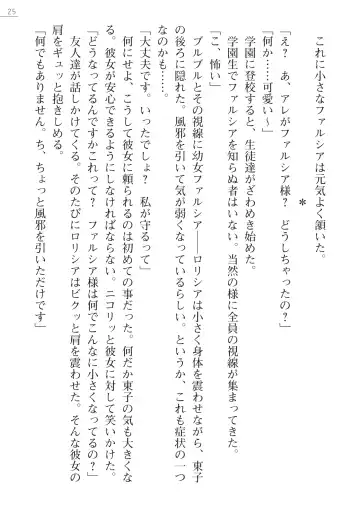 25
これに小さなファルシアは元気よく頷いた。
*
「え? あ、アレがファルシア様? どうしちゃったの?」
「何か……可愛い～」
学園に登校すると、生徒達がざわめき始めた。
学園生でファルシアを知らぬ者はいない。当然の様に全員の視線が集まってきた。
「こ、怖い」
ブルブルとその視線に幼女ファルシア――ロリシアは小さく身体を震わせながら、東子
の後ろに隠れた。風邪を引いて気が弱くなっているらしい。というか、これも症状の一つ
なのかも……。
「大丈夫です。いったでしょ? 私が守るって」
何にせよ、こうして彼女に頼られるのは初めての事だった。何だか東子の気も大きくな
る。彼女が安心できるようにしなければならない。ニコリッと彼女に対して笑いかけた。
「どうなってるんですかこれって? ファルシア様は何でこんなに小さくなってるの?」
友人達が話しかけてくる。そのたびにロリシアはビクッと肩を震わせた。そんな彼女の
肩をギュッと抱きしめる。
「何でもありません。ち、ちょっと風邪を引いただけです」